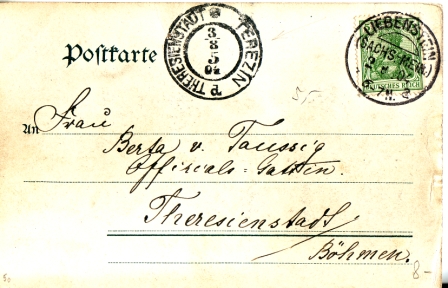 Postkarte
THERESIENSTADT
TEREZÍN
3
8
5
04
LIEBENSTEIN
(SACHS-MEIN.)
DEUTSCHES REICH
5,-
An Frau
Berta v. Taussig
Officials-Gattin.
Theresienstadt
Böhmen.
8-